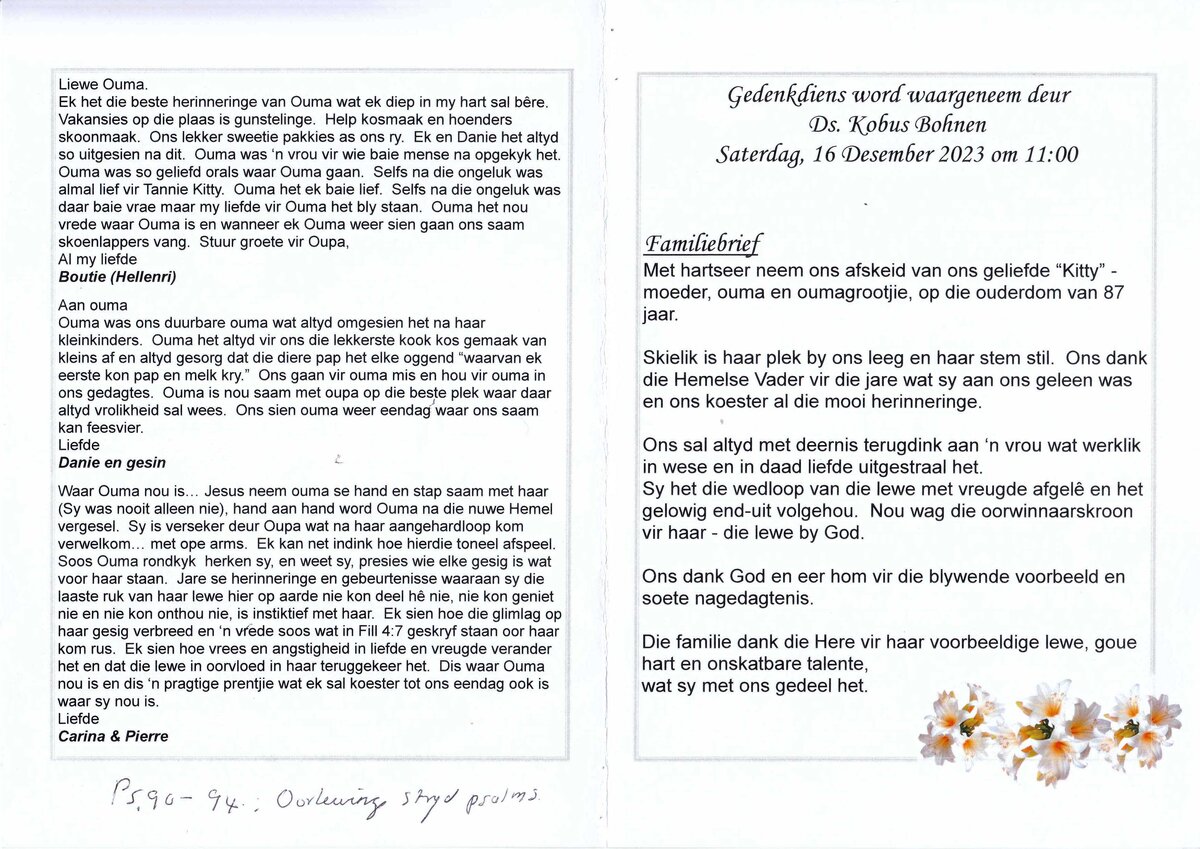 Liewe Ouma.
Ek het die beste herinneringe van Ouma wat ek diep in my hart sal bêre.
Vakansies op die plaas is gunstelinge.  Help kosmaak en hoenders
skoonmaak.  Ons lekker sweetie pakkies as ons ry.  Ek en Danie het altyd
so uitgesien na dit.  Ouma was ‘n vrou vir wie baie mense na opgekyk het.
Ouma was so geliefd orals waar Ouma gaan.  Selfs na die ongeluk was
almal lief vir Tannie Kitty.  Ouma het ek baie lief.  Selfs na die ongeluk was
daar baie vrae maar my liefde vir Ouma het bly staan.  Ouma het nou
vrede waar Ouma is en wanneer ek Ouma weer sien gaan ons saam
skoenlappers vang.  Stuur groete vir Oupa,
Al my liefde
Boutie (Hellenri)
Aan ouma
Ouma was ons duurbare ouma wat altyd omgesien het na haar
kleinkinders.  Ouma het altyd vir ons die lekkerste kook kos gemaak van
kleins af en altyd gesorg dat die diere pap het elke oggend “waarvan ek
eerste kon pap en melk kry.”  Ons gaan vir ouma mis en hou vir ouma in
ons gedagtes.  Ouma is nou saam met oupa op die beste plek waar daar
altyd vrolikheid sal wees.  Ons sien ouma weer eendag waar ons saam
kan feesvier.
Liefde
Danie en gesin
Waar Ouma nou is… Jesus neem ouma se hand en stap saam met haar
(Sy was nooit alleen nie), hand aan hand word Ouma na die nuwe Hemel
vergesel.  Sy is verseker deur Oupa wat na haar aangehardloop kom
verwelkom… met ope arms.  Ek kan net indink hoe hierdie toneel afspeel.
Soos Ouma rondkyk  herken sy, en weet sy, presies wie elke gesig is wat
voor haar staan.  Jare se herinneringe en gebeurtenisse waaraan sy die
laaste ruk van haar lewe hier op aarde nie kon deel hê nie, nie kon geniet
nie en nie kon onthou nie, is instiktief met haar.  Ek sien hoe die glimlag op
haar gesig verbreed en ‘n vrede soos wat in Fill 4:7 geskryf staan oor haar
kom rus.  Ek sien hoe vrees en angstigheid in liefde en vreugde verander
het en dat die lewe in oorvloed in haar teruggekeer het.  Dis waar Ouma
nou is en dis ‘n pragtige prentjie wat ek sal koester tot ons eendag ook is
waar sy nou is.
Liefde
Carina & Pierre
Ps. 90 - 94.: Oorlewing stryd psalms.
Gedenkdiens word waargeneem deur
Ds. Kobus Bohnen
Saterdag, 16 Desember 2023 om 11:00
Familiebrief
Met hartseer neem ons afskeid van ons geliefde “Kitty” -
moeder, ouma en oumagrootjie, op die ouderdom van 87
jaar.
Skielik is haar plek by ons leeg en haar stem stil.  Ons dank
die Hemelse Vader vir die jare wat sy aan ons geleen was
en ons koester al die mooi herinneringe.
Ons sal altyd met deernis terugdink aan ‘n vrou wat werklik
in wese en in daad liefde uitgestraal het.
Sy het die wedloop van die lewe met vreugde afgelê en het
gelowig end-uit volgehou.  Nou wag die oorwinnaarskroon
vir haar - die lewe by God.
Ons dank God en eer hom vir die blywende voorbeeld en
soete nagedagtenis.
Die familie dank die Here vir haar voorbeeldige lewe, goue
hart en onskatbare talente,
wat sy met ons gedeel het.